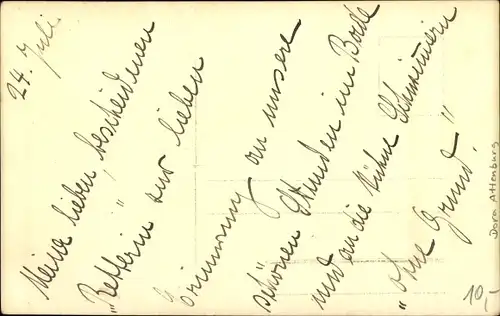 24. Juli
Meiner lieben bescheidenen
"Retterin" zur lieben
Erinnerung an unsere
schönen Stunden im Bade
und an die kühne Schwimmerin
"ohne Grund."
Dora Altenburg
10,-